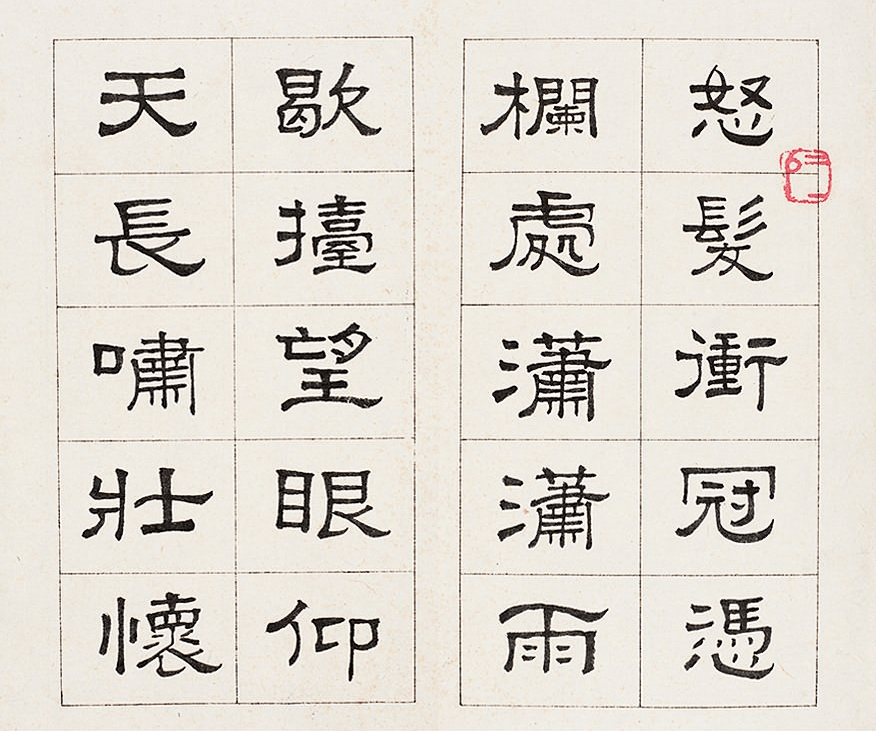 怒髮衝冠憑
欄處瀟瀟雨
歇擡望眼仰
天長嘯壯懷